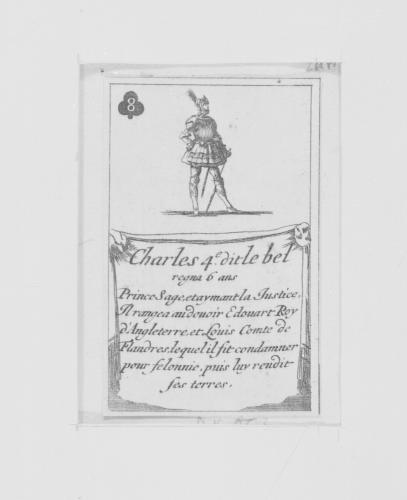 8
Charles 4.e dit le bel
regna 6 ans
Prince Sage, et aymant la Justice,
Il rangea au devoir Edouart Roy
d'Angleterre, et Louis Comte de
Flandres, lequel il fit condamner
pour felonnie, puis luy rendit
ses terres.